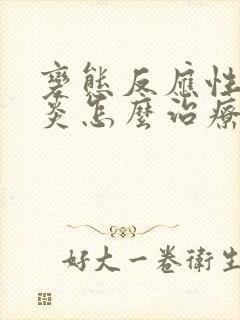 變態反應性
炎怎麼治療
好大一卷衛生